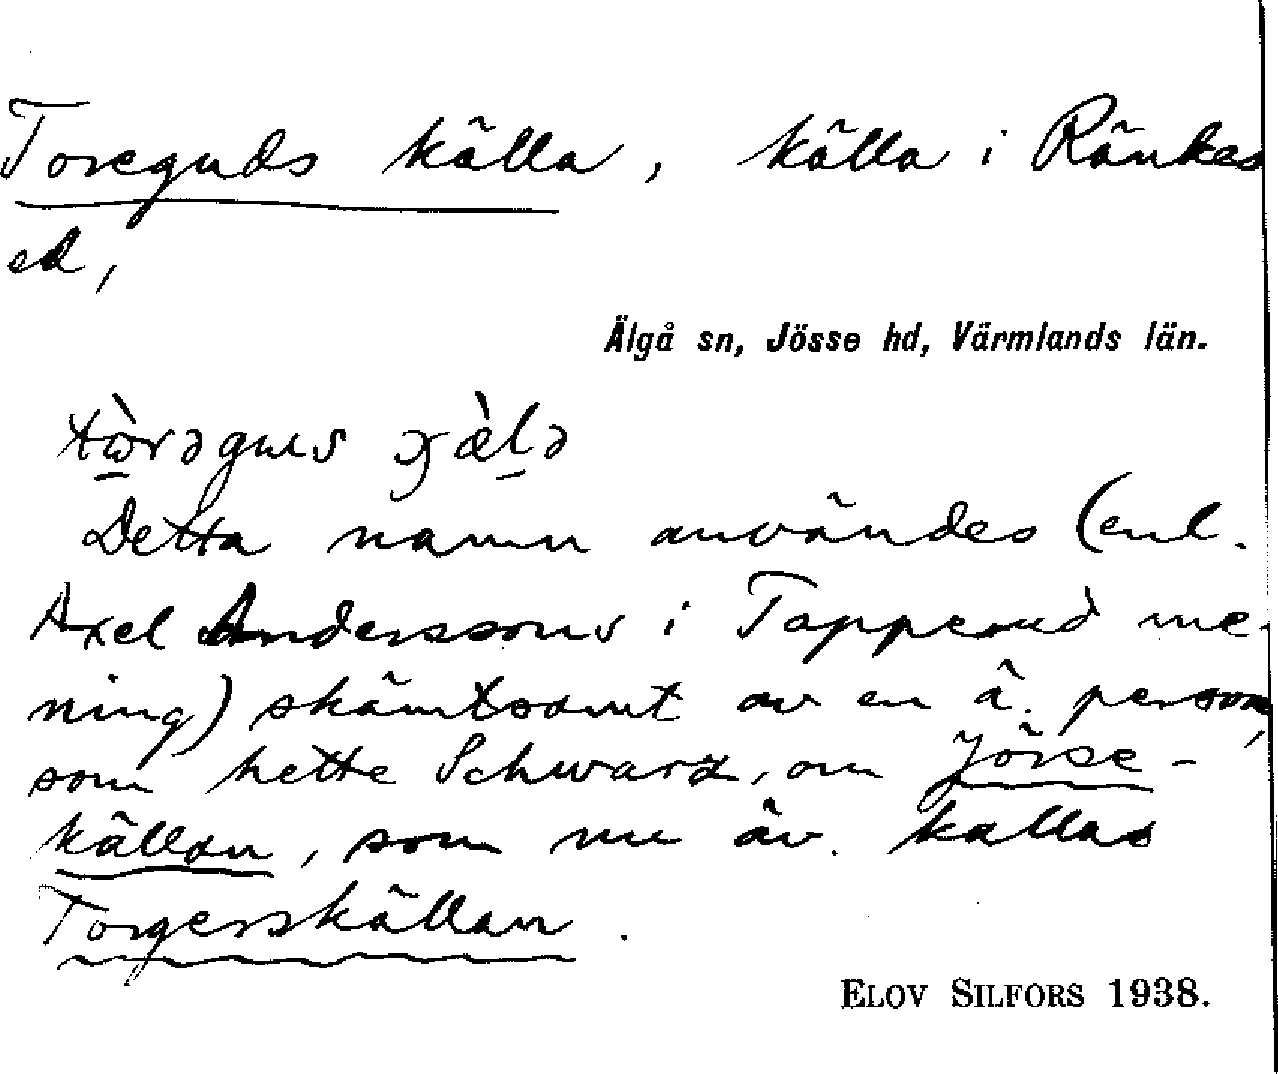 Toreguds källa, källa i Ränkes
ed,
Älgå sn, Jösse hd, Värmlands län.
Detta namn användes (enl.
Axel Anderssons i Tapperud me-
ning) skämtsamt av en ä. person,
som hette Schwartz, om Jösse-
källan, som nu äv. kallas
Torgerskällan.
ELOV SILFORS 1938.